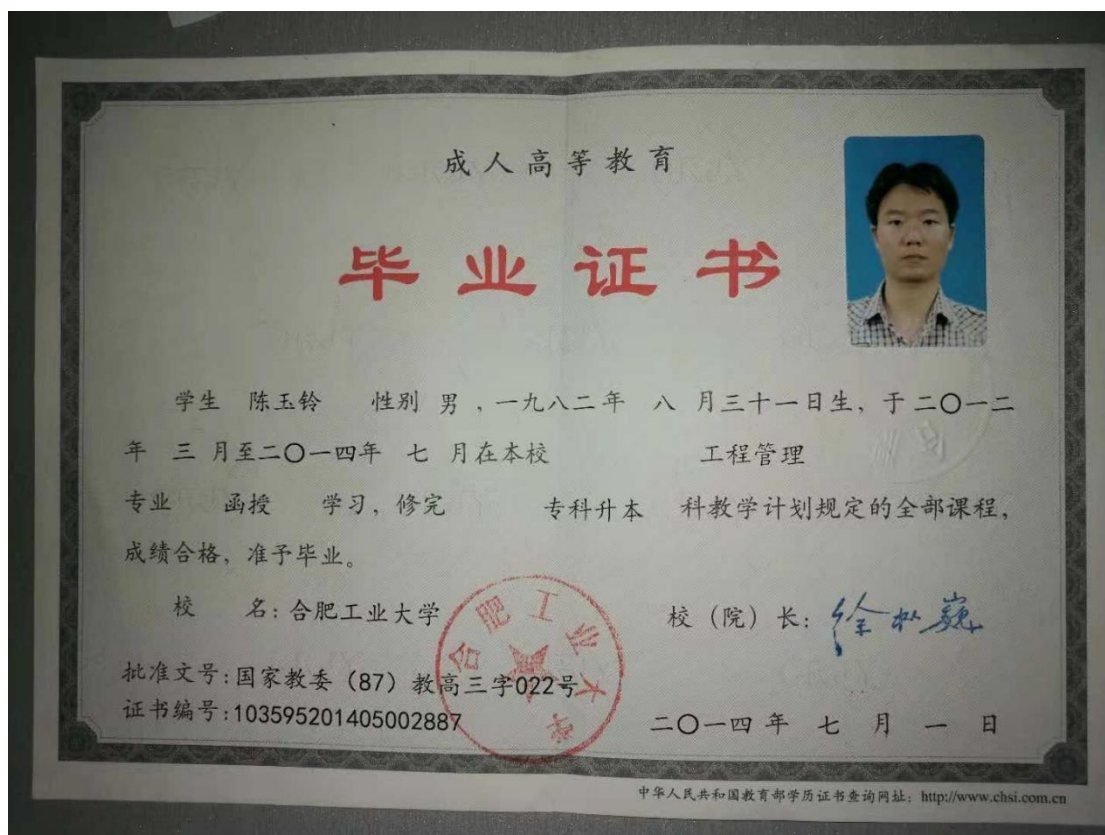 成人高等教育
毕业证书
学生 陈玉铃 性别 男 ,一九八二年 八 月三十一日生, 于二〇一二
年 三 月至二〇一四年 七 月在本校 工程管理
专业 函授 学习, 修完 专科升本 科教学计划规定的全部课程,
成绩合格, 准予毕业。
校 名: 合肥工业大学 校 (院) 长:
合肥工业大学
批准文号: 国家教委 (87) 教高三字022号
证书编号: 103595201405002887
二〇一四 年 七 月 一 日
中华人民共和国教育部学历证书查询网址: http://www.chsi.com.cn